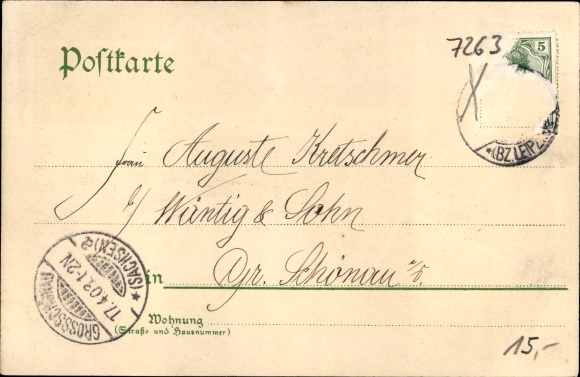 7263
5
Postkarte
*(BZ LEIPZ
Frau Auguste Kretschmer
b/ Wäntig & Sohn
in Gr. Schönau i/S.
GROSSSCHÖNAU
17.4.03.1-2N
*(SACHSEN)a
Wohnung
(Straße und Hausnummer)
15,-